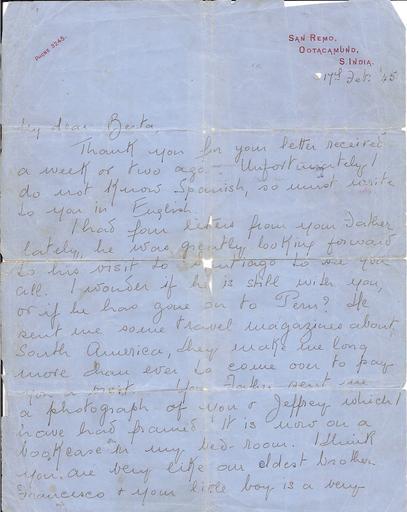 PHONE 3245.
SAN REMO,
OOTACAMUND,
S. INDIA.
17th Feb. '45
My dear Berta,
Thank you for your letter received
a week or two ago. Unfortunately I
do not know Spanish, so must write
to you in English.
I had four letters from your Father
lately, he was greatly looking forward
to his visit to Santiago to see you
all. I wonder if he is still with you,
or if he has gone on to Peru? He
sent me some travel magazines about
South America, they make me long
more than ever to come over to pay
you a visit. Your Father sent me
a photograph of you & Jeffrey which I
have had framed. It is now on a
bookcase in my bed-room. I think
you are very like our eldest brother
Francisco & your little boy is a very